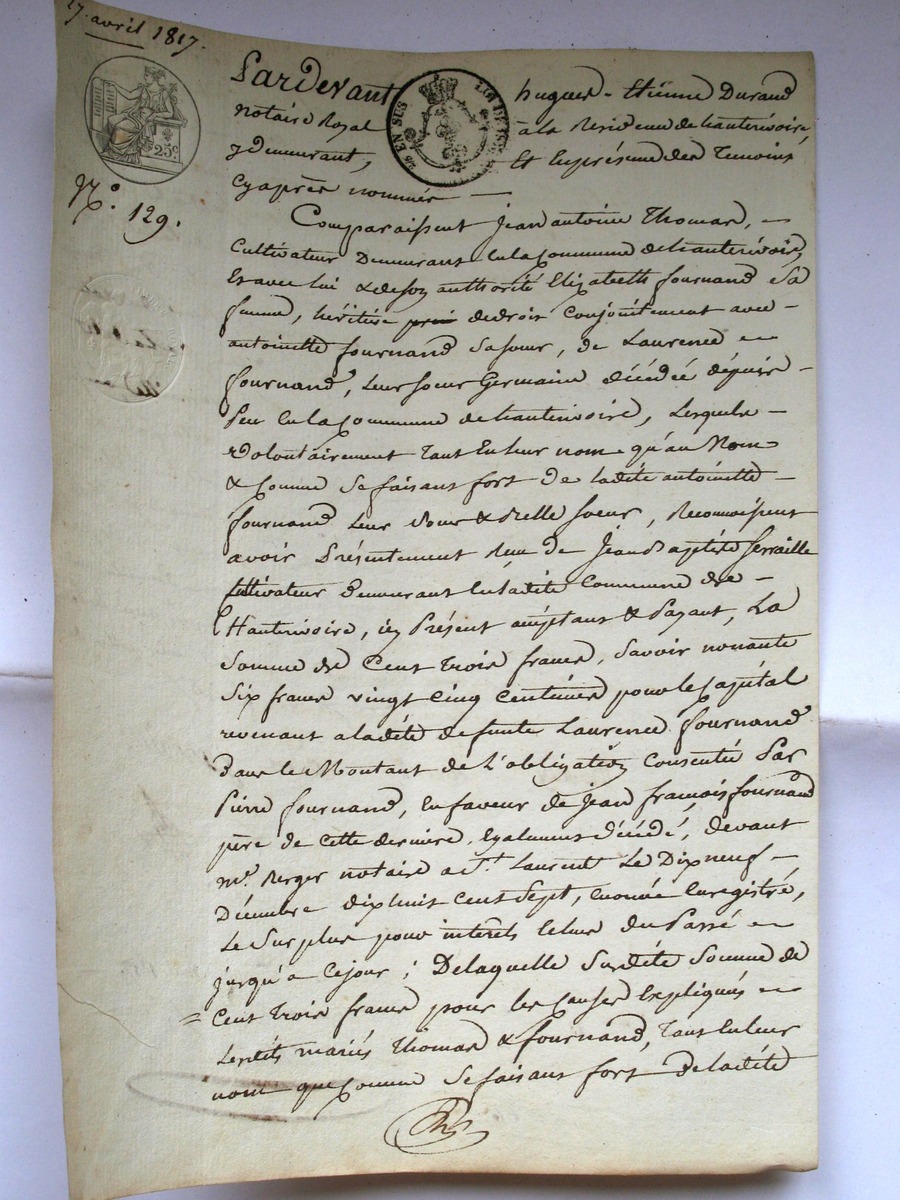 17. avril 1817.
25c
EN SUS
LOI DE 1816
N.o 129.
Pardevant hugues-Etienne Durand
notaire Royal à la Residence de hauterivoire,
y demeurant, Et En présence des Temoins
Cyaprès nommés —
Comparaissent Jean antoine Thomas, —
Cultivateur Demeurant En la Commune de hauterivoire,
Et avec lui & de son authorité Elizabeth fournand Sa
femme, héritière de droit Conjointement avec —
antoinette fournand Sa soeur, de Laurence —
fournand, Leur soeur Germaine décédée dépuis —
Peu En la Commune de hauterivoire, Lesquels —
volontairement Tant En leur nom qu'au Nom
& Comme Se faisant fort De ladite antoinette —
fournand Leur soeur & belle soeur, Reconnaissent
avoir Présentement Reçu de Jean Baptiste Serraille
Cultivateur Demeurant En ladite Commune de —
Hauterivoire, icy Présent acceptant & Payant, La
Somme de Cent Trois francs, Savoir nonante
Six francs vingt Cinq Centimes pour le Capital
revenant a ladite defunte Laurence fournand
Dans le Montant de L'obligation Consentie Par
Pierre fournand, En faveur de Jean françois fournand
père de Cette derniere, Egalement décédé, devant
M.e Berger notaire a St. Laurent Le Dixneuf —
Décembre dixhuit Cent Sept, Enregistré,
Le Surplus pour interets Echus du Passé —
jusqu'a Cejour ; De laquelle Susdite Somme de
= Cent Trois francs pour les Causes Expliqués —
Lesdits mariés Thomas & fournand, Tant En leur
nom que Comme Se faisant fort De ladite